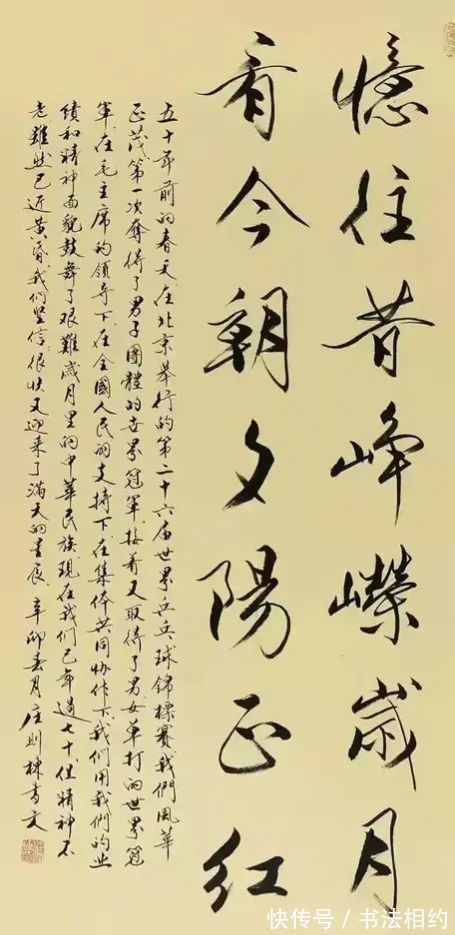 憶往昔峥嶸歲月
看今朝夕陽正红
五十年前的春天在北京举行的第二十六届世界乒乓球锦標赛我們風華
正茂第一次奪得了男子團體的世界冠军接着又取得了男女单打的世界冠
军在毛主席的领导下在全國人民的支持下在集体共同协作下我們用我們的业
绩和精神面貌鼓舞了艰難歲月里的中華民族現在我們已年逾七十但精神不
老雖然已近黄昏我們坚信很快又迎来了满天的星辰辛卯春月庄则栋书文
快传号／书法相约